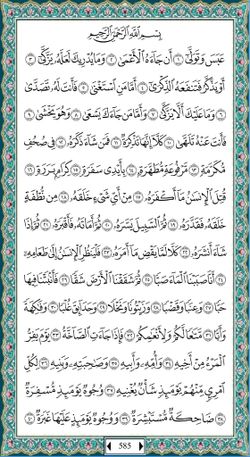 بِسْمِ اللَّهِ الرَّحْمَٰنِ الرَّحِيمِ
عَبَسَ وَتَوَلَّىٰ ١ أَن جَاءَهُ الْأَعْمَىٰ ٢ وَمَا يُدْرِيكَ لَعَلَّهُ يَزَّكَّىٰ ٣
أَوْ يَذَّكَّرُ فَتَنفَعَهُ الذِّكْرَىٰ ٤ أَمَّا مَنِ اسْتَغْنَىٰ ٥ فَأَنتَ لَهُ تَصَدَّىٰ ٦
وَمَا عَلَيْكَ أَلَّا يَزَّكَّىٰ ٧ وَأَمَّا مَن جَاءَكَ يَسْعَىٰ ٨ وَهُوَ يَخْشَىٰ ٩
فَأَنتَ عَنْهُ تَلَهَّىٰ ١٠ كَلَّا إِنَّهَا تَذْكِرَةٌ ١١ فَمَن شَاءَ ذَكَرَهُ ١٢ فِي صُحُفٍ
مُّكَرَّمَةٍ ١٣ مَّرْفُوعَةٍ مُّطَهَّرَةٍ ١٤ بِأَيْدِي سَفَرَةٍ ١٥ كِرَامٍ بَرَرَةٍ ١٦
قُتِلَ الْإِنسَانُ مَا أَكْفَرَهُ ١٧ مِنْ أَيِّ شَيْءٍ خَلَقَهُ ١٨ مِن نُّطْفَةٍ
خَلَقَهُ فَقَدَّرَهُ ١٩ ثُمَّ السَّبِيلَ يَسَّرَهُ ٢٠ ثُمَّ أَمَاتَهُ فَأَقْبَرَهُ ٢١ ثُمَّ إِذَا
شَاءَ أَنشَرَهُ ٢٢ كَلَّا لَمَّا يَقْضِ مَا أَمَرَهُ ٢٣ فَلْيَنظُرِ الْإِنسَانُ إِلَىٰ طَعَامِهِ ٢٤
أَنَّا صَبَبْنَا الْمَاءَ صَبًّا ٢٥ ثُمَّ شَقَقْنَا الْأَرْضَ شَقًّا ٢٦ فَأَنبَتْنَا فِيهَا
حَبًّا ٢٧ وَعِنَبًا وَقَضْبًا ٢٨ وَزَيْتُونًا وَنَخْلًا ٢٩ وَحَدَائِقَ غُلْبًا ٣٠ وَفَاكِهَةً
وَأَبًّا ٣١ مَّتَاعًا لَّكُمْ وَلِأَنْعَامِكُمْ ٣٢ فَإِذَا جَاءَتِ الصَّاخَّةُ ٣٣ يَوْمَ يَفِرُّ
الْمَرْءُ مِنْ أَخِيهِ ٣٤ وَأُمِّهِ وَأَبِيهِ ٣٥ وَصَاحِبَتِهِ وَبَنِيهِ ٣٦ لِكُلِّ
امْرِئٍ مِّنْهُمْ يَوْمَئِذٍ شَأْنٌ يُغْنِيهِ ٣٧ وُجُوهٌ يَوْمَئِذٍ مُّسْفِرَةٌ ٣٨
ضَاحِكَةٌ مُّسْتَبْشِرَةٌ ٣٩ وَوُجُوهٌ يَوْمَئِذٍ عَلَيْهَا غَبَرَةٌ ٤٠
585